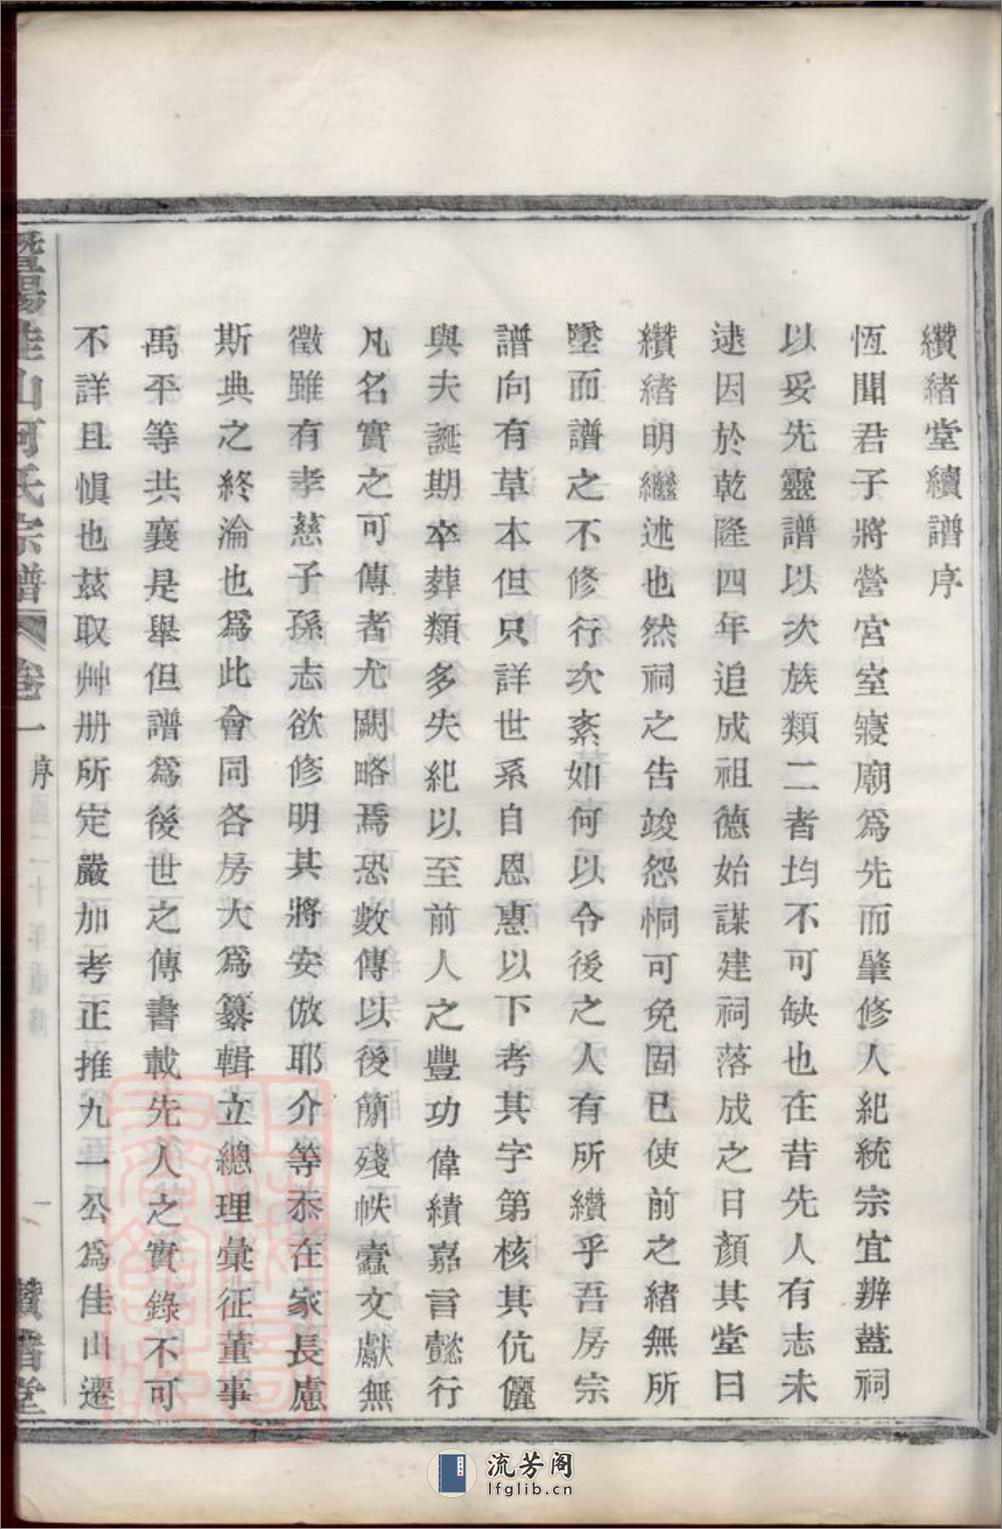 纘緒堂續譜序
恆聞君子將營宮室寢廟爲先而肇修人紀統宗宜辨蓋祠
以妥先靈譜以次族類二者均不可缺也在昔先人有志未
逮因於乾隆四年追成祖德始謀建祠落成之日顏其堂曰
纘緒明繼述也然祠之告竣怨恫可免固已使前之緒無所
墜而譜之不修行次紊如何以令後之人有所纘乎吾房宗
譜向有草本但只詳世系自恩惠以下考其字第核其伉儷
與夫誕期卒葬類多失紀以至前人之豐功偉績嘉言懿行
凡名實之可傳者尤闕略焉恐數傳以後簡殘帙蠹文獻無
徵雖有孝慈子孫志欲修明其將安倣耶介等忝在家長慮
斯典之終淪也爲此會同各房大爲纂輯立總理彙征董事
禹平等共襄是舉但譜爲後世之傳書載先人之實錄不可
不詳且慎也茲取艸册所定嚴加考正推九一公爲佳山遷
暨陽佳山何氏宗譜 卷一 序 一 纘緒堂
流芳阁
lfglib.cn